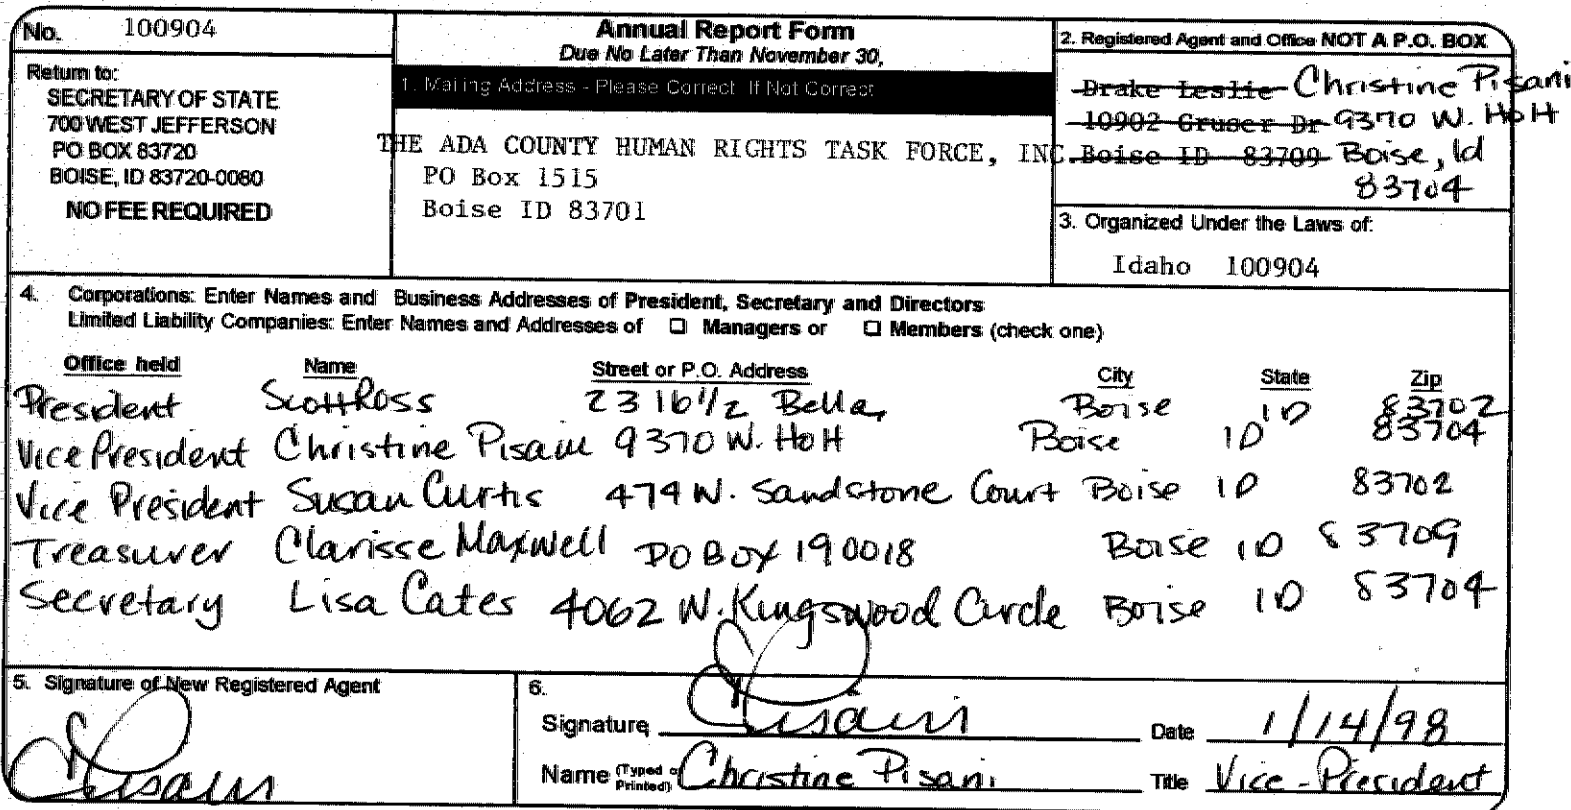 No. 100904
Return to:
SECRETARY OF STATE
700 WEST JEFFERSON
PO BOX 83720
BOISE, ID 83720-0080
NO FEE REQUIRED
Annual Report Form
Due No Later Than November 30,
1. Mailing Address - Please Correct If Not Correct
THE ADA COUNTY HUMAN RIGHTS TASK FORCE, INC.
PO Box 1515
Boise ID 83701
2. Registered Agent and Office NOT A P.O. BOX
Drake Leslie Christine Pisani
10902 Gruser Dr 9370 W. Holt
Boise ID 83709 Boise, Id
83704
3. Organized Under the Laws of:
Idaho 100904
4. Corporations: Enter Names and Business Addresses of President, Secretary and Directors
Limited Liability Companies: Enter Names and Addresses of ☐ Managers or ☐ Members (check one)
Office held Name Street or P.O. Address City State Zip
President Scott Ross 2316 1/2 Bella, Boise ID 83702
Vice President Christine Pisani 9370 W. Holt Boise ID 83704
Vice President Susan Curtis 474 W. Sandstone Court Boise ID 83702
Treasurer Clarisse Maxwell PO Box 190018 Boise ID 83709
Secretary Lisa Cates 4062 W. Kingswood Circle Boise ID 83704
5. Signature of New Registered Agent
CPisani
6.
Signature CPisani Date 1/14/98
Name (Typed or Printed) Christine Pisani Title Vice-President